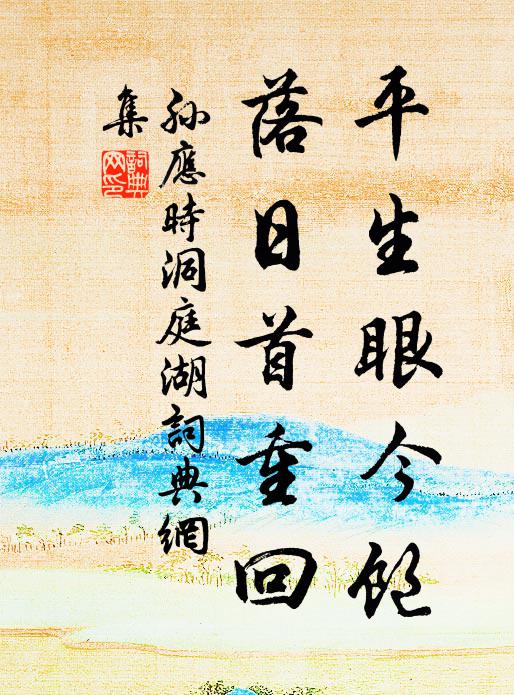 平生眼今飽
落日首重回
孙應時洞庭湖詞典網
集
詞典网印